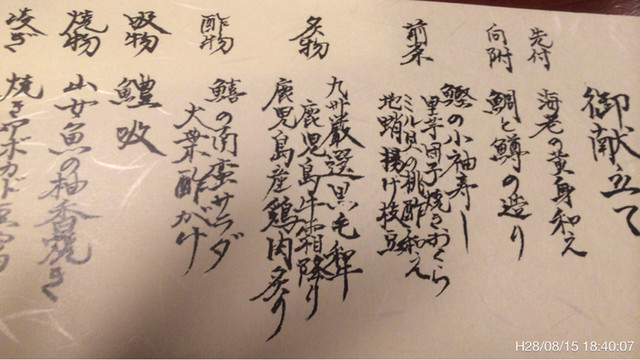 御献立て
先付
海老の黄身和え
向附
鯛と鱒の造り
前菜
鰹の小袖寿し
里芋団子焼きおくら
ミル貝の桃酢和え
地蛸 揚げ枝豆
炙物
九州厳選黒毛和牛
鹿児島牛霜降り
鹿児島産鶏肉炙り
酢物
鱚の南蛮サラダ
大葉酢がけ
吸物
鱧吸
焼物
山女魚の柚香焼き
凌ぎ
焼きアボカド
H28/08/15 18:40:07